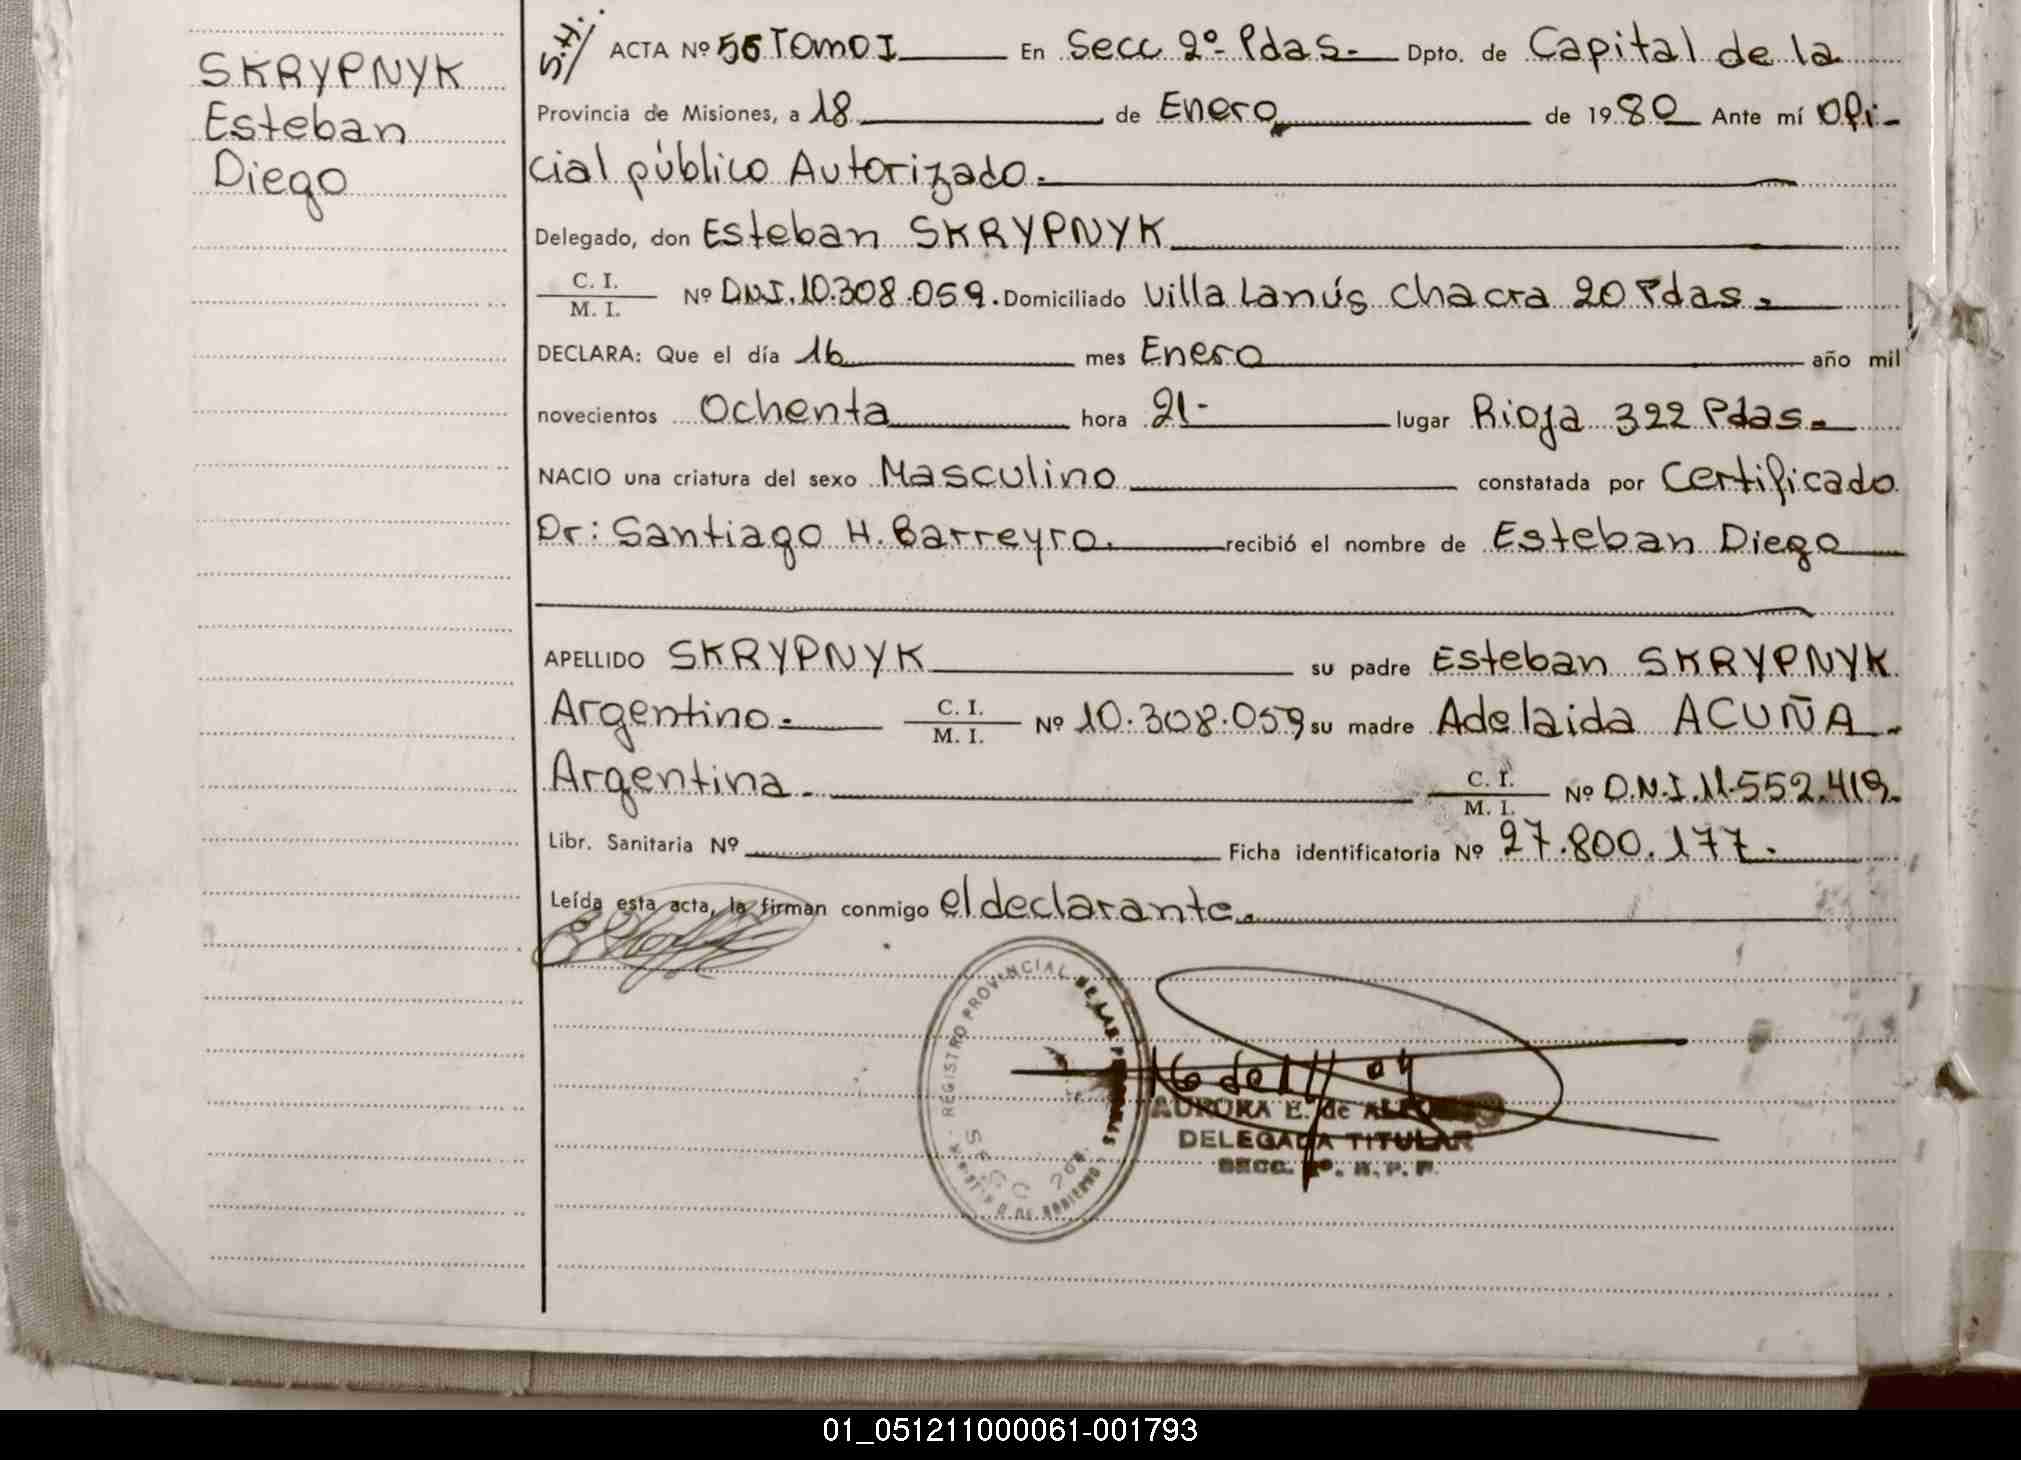 SKRYPNYK
Esteban
Diego
S.H.
ACTA Nº 56 TOMO I En Secc 2º Pdas.- Dpto. de Capital de la
Provincia de Misiones, a 18 de Enero de 1980 Ante mí Ofi-
cial público Autorizado.-
Delegado, don Esteban SKRYPNYK
C. I.
M. I. Nº D.N.I. 10.308.059. Domiciliado Villa Lanús Chacra 20 Pdas.-
DECLARA: Que el día 16 mes Enero año mil
novecientos Ochenta hora 21- lugar Rioja 322 Pdas.-
NACIO una criatura del sexo Masculino constatada por Certificado
Dr: Santiago H. Barreyro. recibió el nombre de Esteban Diego
APELLIDO SKRYPNYK su padre Esteban SKRYPNYK
Argentino.- C. I.
M. I. Nº 10.308.059 su madre Adelaida ACUÑA.-
Argentina.- C. I.
M. I. Nº D.N.I. 11.552.419.
Libr. Sanitaria Nº Ficha identificatoria Nº 27.800.177.-
Leída esta acta, la firman conmigo el declarante.-
REGISTRO PROVINCIAL DE LAS PERSONAS
SECC 2da.
DE GOBIERNO
AURORA E. de
DELEGADA TITULAR
SECC. R. P. P.
01_051211000061-001793